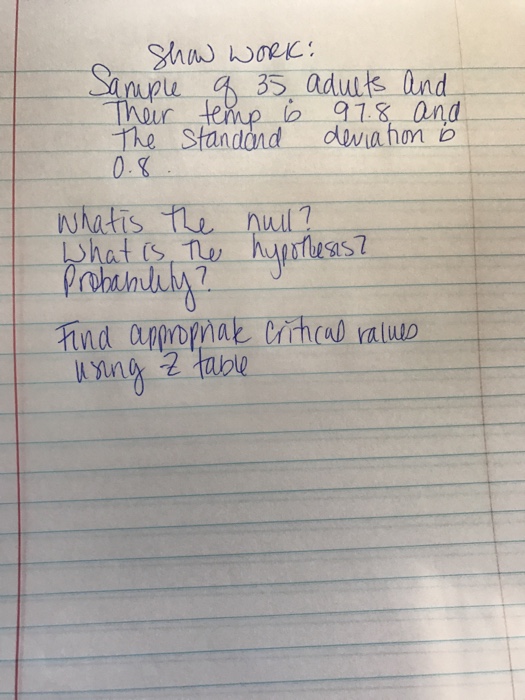 Show work:
Sample of 35 adults and
Their temp is 97.8 and
The standard deviation is
0.8.
Whatis the null?
What is the hypothesis?
Probability?
Find appropriate critical values
using Z table